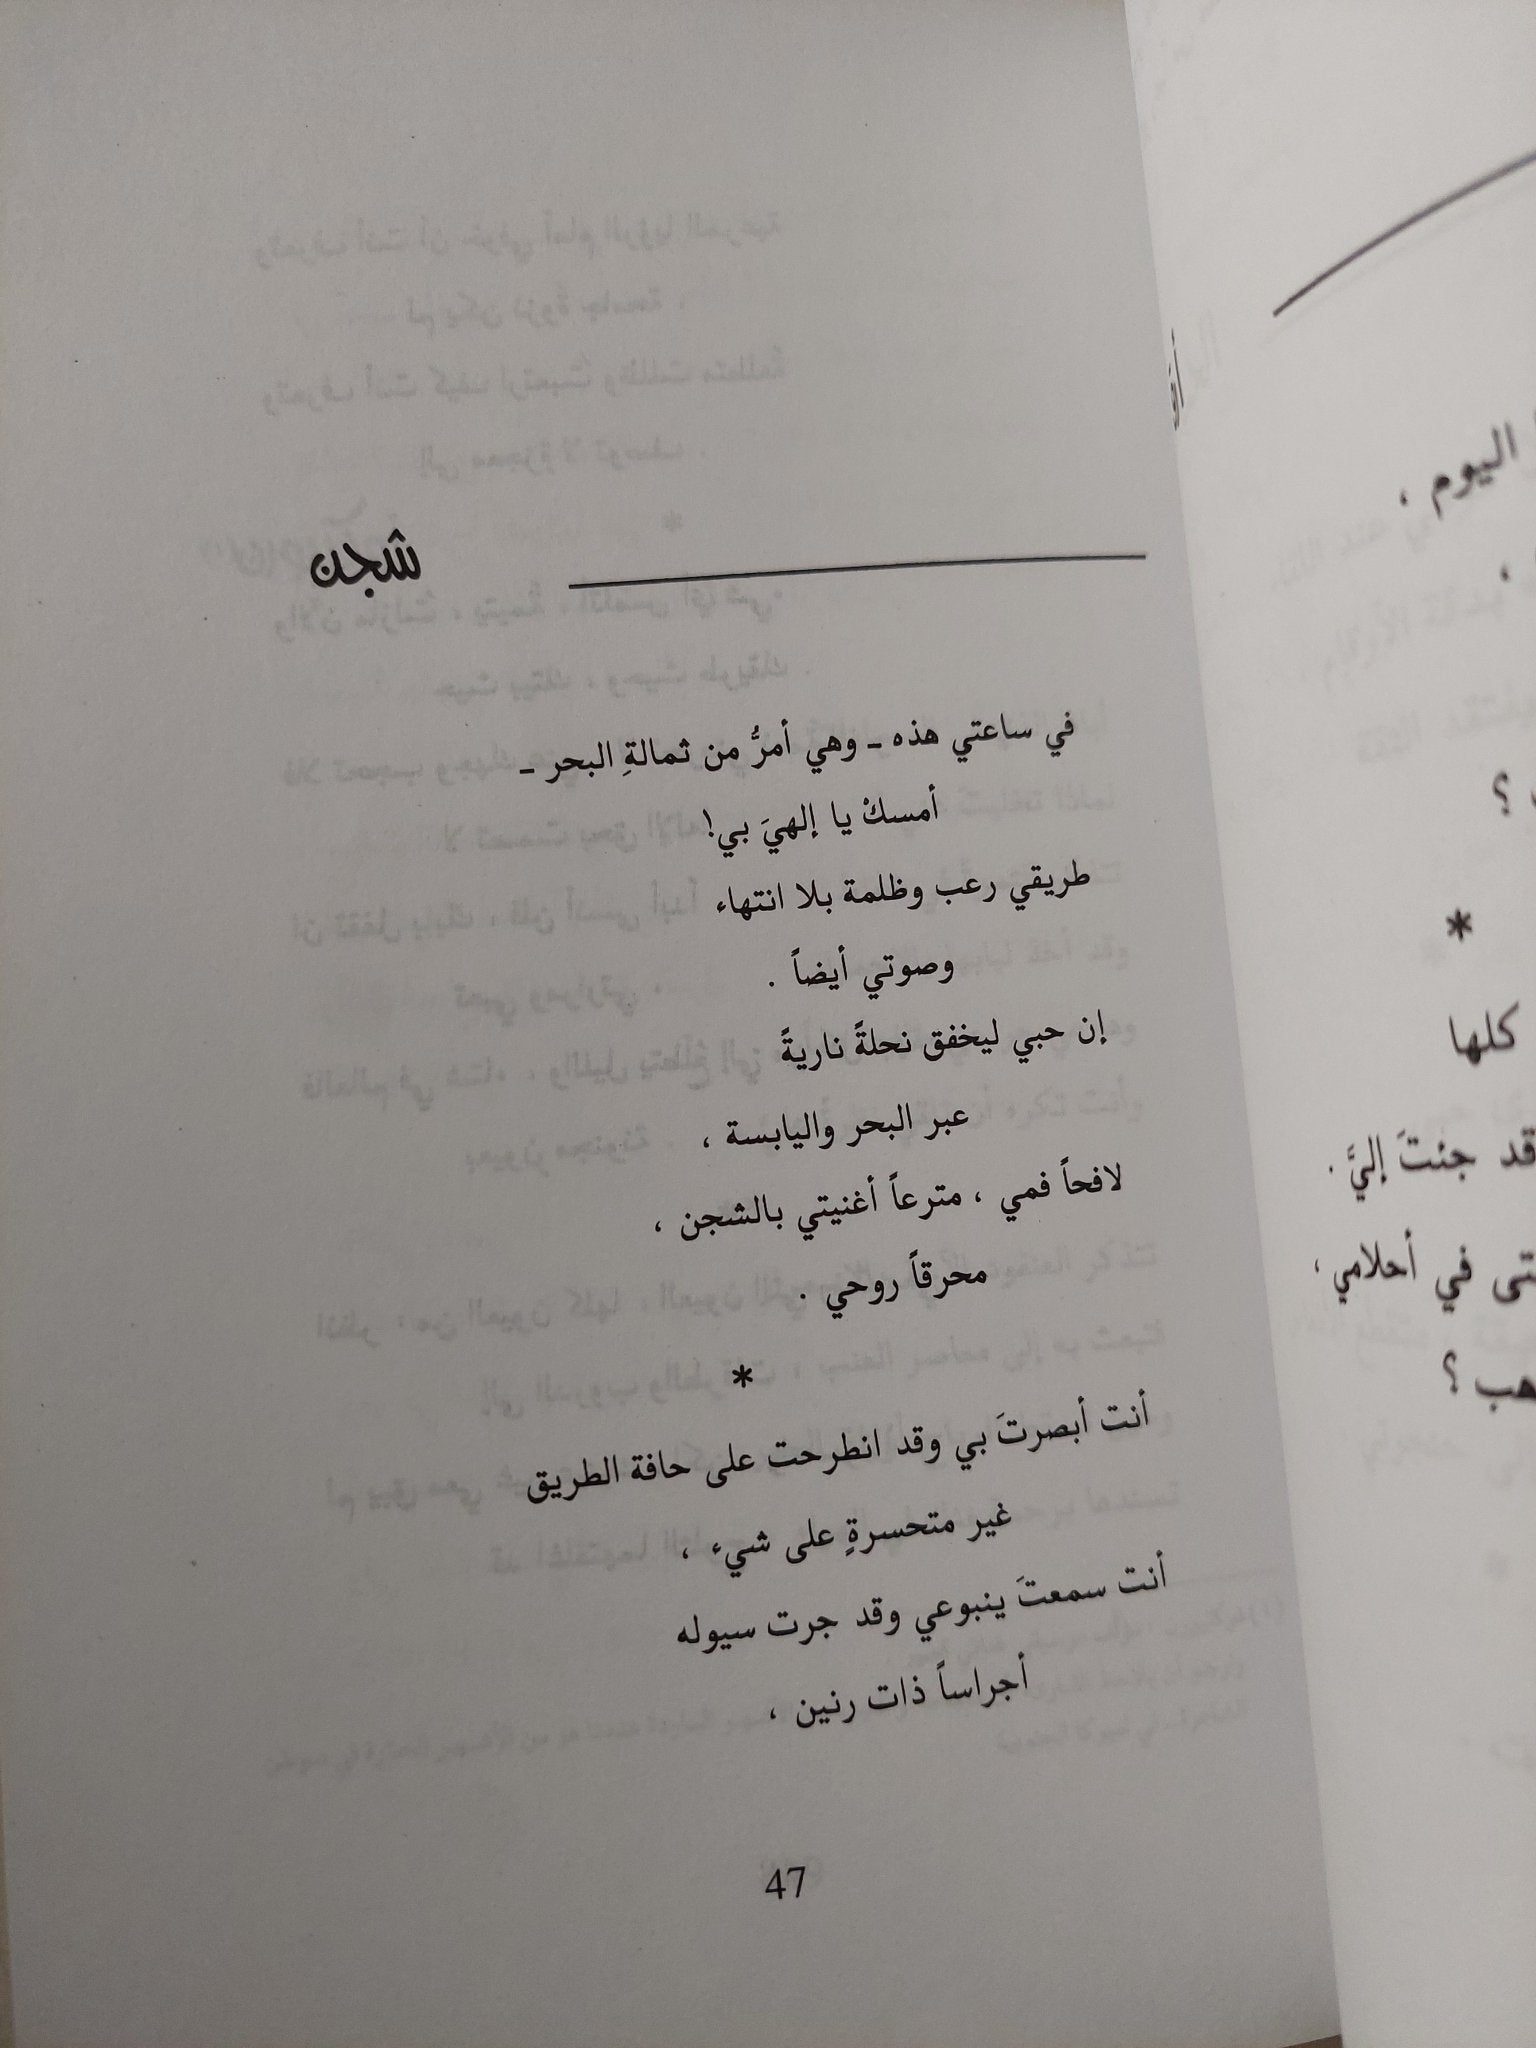 شجن
في ساعتي هذه ـ وهي أمرُّ من ثمالةِ البحر ـ
أمسكْ يا إلهيَ بي!
طريقي رعب وظلمة بلا انتهاء
وصوتي أيضاً .
إن حبي ليخفق نحلةً ناريةً
عبر البحر واليابسة ،
لافحاً فمي ، مترعاً أغنيتي بالشجن ،
محرقاً روحي .
*
أنت أبصرتَ بي وقد انطرحت على حافة الطريق
غير متحسرةٍ على شيء ،
أنت سمعتَ ينبوعي وقد جرت سيوله
أجراساً ذات رنين ،
47
اليوم ،
؟
*
كلها
قد جئتَ إليَّ .
في أحلامي ،
؟